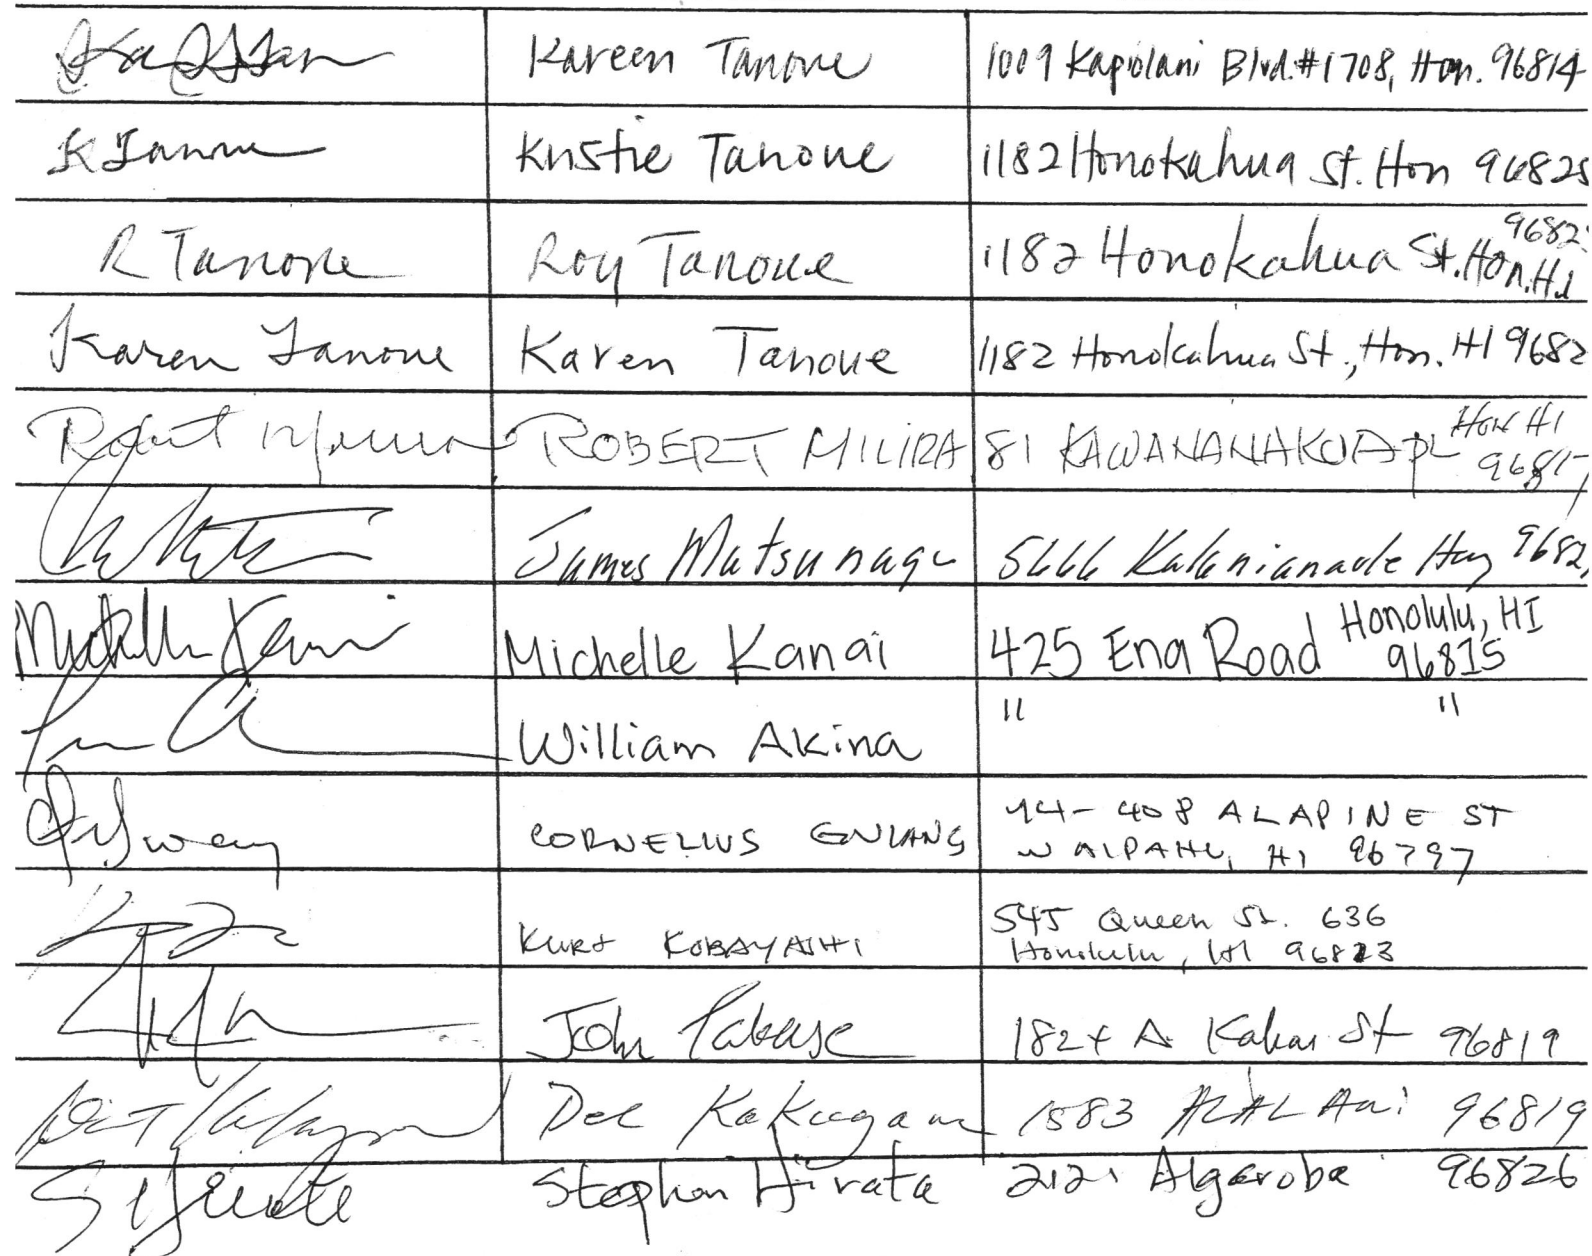 Kareen Tanoue 1009 Kapiolani Blvd. #1708, Hon. 96814
K Tanoue Kristie Tanoue 1182 Honokahua St. Hon 96825
R Tanoue Roy Tanoue 1182 Honokahua St. Hon. HI 9682
Karen Tanoue Karen Tanoue 1182 Honokahua St., Hon. HI 9682
Robert ROBERT MILIRA 81 KAWANANAKOA PL HON HI 96817
James Matsunaga 5666 Kalanianaole Hwy 9682
Michelle Kanai Michelle Kanai 425 Ena Road Honolulu, HI 96815
William Akina " "
CORNELIUS 94-408 ALAPINE ST
WAIPAHU, HI 96797
KURT KOBAYASHI 545 Queen St. 636
Honolulu, HI 96813
John 1824 A St 96819
Kakugawa 1583 96819
S Hirata Stephen Hirata 2121 Algaroba 96826